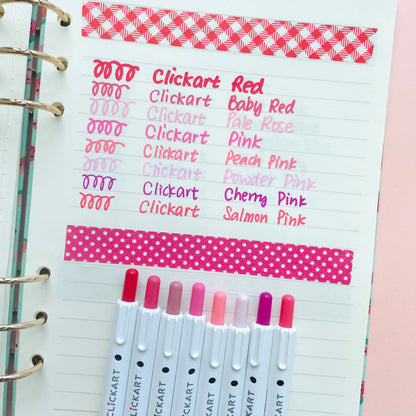 Clickart Red
Clickart Baby Red
Clickart Pale Rose
Clickart Pink
Clickart Peach Pink
Clickart Powder Pink
Clickart Cherry Pink
Clickart Salmon Pink
CLICKART
CLICKART
CLICKART
CLICKART
CLICKART
CLICKART
CLICKART
CLICKART